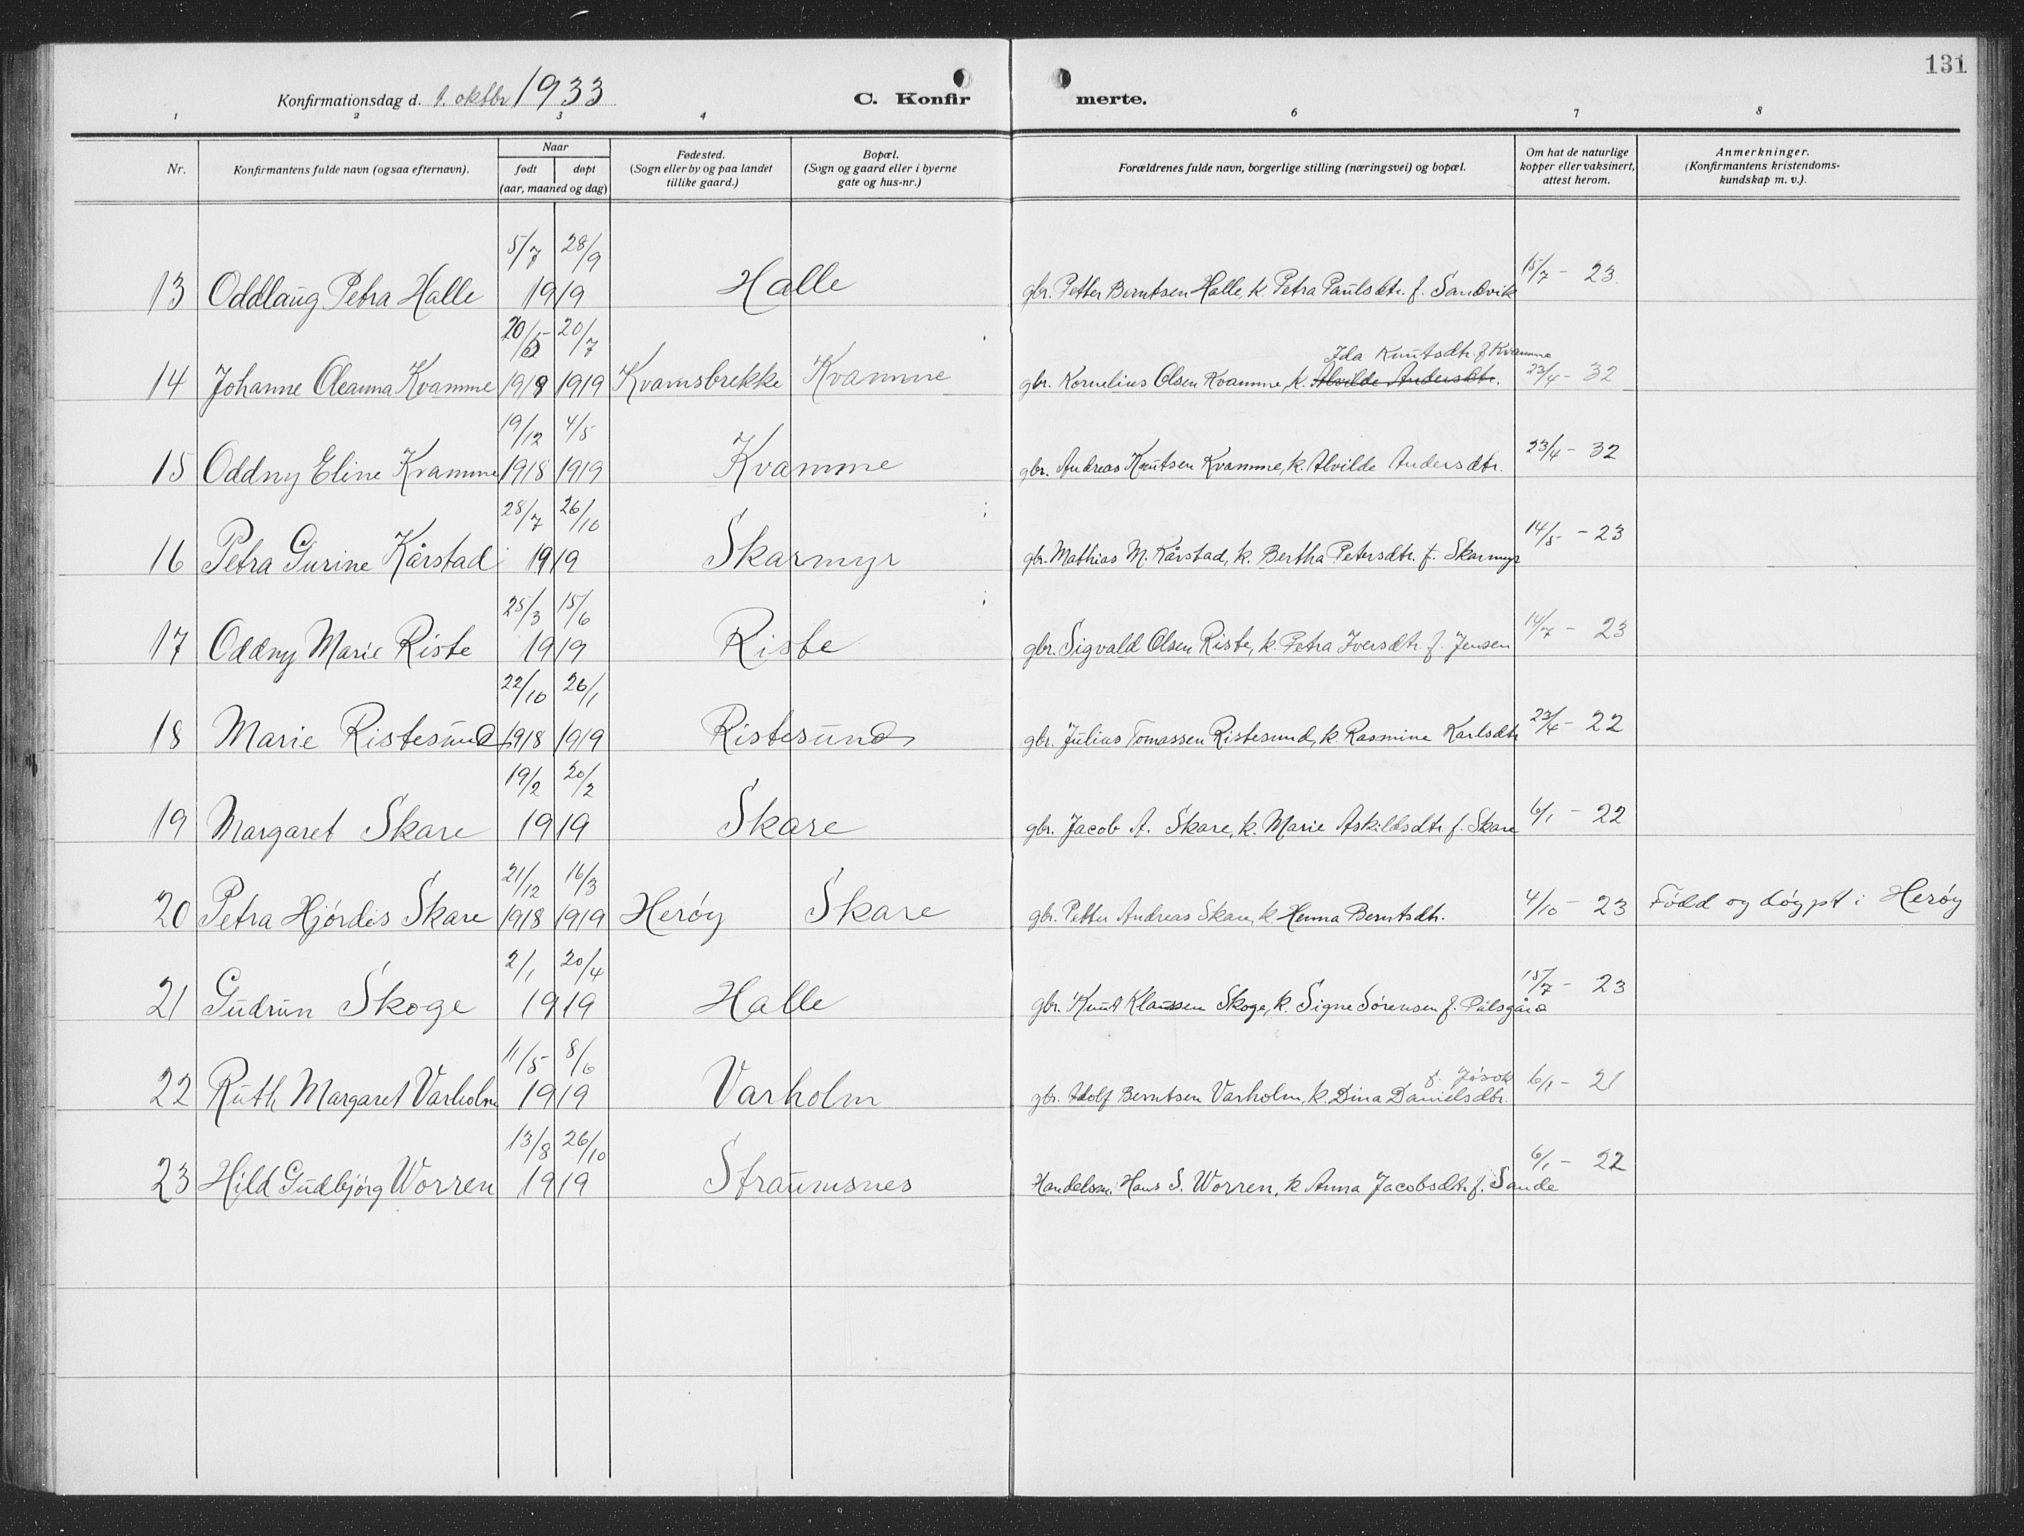 131
Konfirmationsdag d. 1. oktbr 1933 C. Konfir merte.
1 2 3 4 6 7 8
Nr. Konfirmantens fulde navn (ogsaa efternavn). Naar født døpt (aar, maaned og dag) Fødested. (Sogn eller by og paa landet tillike gaard.) Bopæl. (Sogn og gaard eller i byerne gate og hus-nr.) Forældrenes fulde navn, borgerlige stilling (næringsvei) og bopæl. Om hat de naturlige kopper eller vaksinert, attest herom. Anmerkninger. (Konfirmantens kristendoms-kundskap m. v.).
5/7 28/9
13 Oddlaug Petra Halle 1919 Halle gbr. Petter Berntsen Halle, k. Petra Paulsdtr. f. Sandvik 15/7 - 23.
20/7 Ida Knutsdtr. f Kvamme
14 Johanne Oleanna Kvamme 1919 Kvamsbrekke Kvamme gbr. Kornelius Olsen Kvamme, k. Alvilde Andersdtr. 23/4 - 32
19/12 4/5
15 Oddny Eline Kvamme 1918 1919 Kvamme gbr. Andreas Knutsen Kvamme, k. Alvilde Andersdtr. 23/4 - 32
28/7 26/10
16 Petra Gurine Kårstad 1919 Skarmyr gbr. Mathias M. Kårstad, k. Bertha Petersdtr. f. Skarmyr 14/5 - 23
25/3 15/6
17 Oddny Marie Riste 1919 Riste gbr. Sigvald Olsen Riste, k. Petra Iversdtr. f. Jensen 14/7 - 23
22/10 26/1
18 Marie Ristesund 1918 1919 Ristesund gbr. Julius Tomassen Ristesund, k. Rasmine Karlsdtr 23/4 - 22
19/2 20/2
19 Margaret Skare 1919 Skare gbr. Jacob A. Skare, k. Marie Askildsdtr. f. Skare 6/1 - 22
21/12 16/3
20 Petra Hjördis Skare 1918 1919 Herøy Skare gbr. Petter Andreas Skare, k. Henna Berntsdtr. 4/10 - 23 Född og döypt i Herøy
2/1 20/4
21 Gudrun Skoge 1919 Halle gbr. Knut Klaussen Skoge, k. Signe Sørensen f. Pålsgård 15/7 - 23
11/5 8/6 f. Jøsok
22 Ruth Margaret Varholm 1919 Varholm gbr. Adolf Berntsen Varholm, k. Dina Danielsdtr. 6/1 - 21
13/8 26/10
23 Hild Gudbjørg Worren 1919 Straumsnes Handelsm. Hans S. Worren, k. Anna Jacobsdtr. f. Sande 6/1 - 22